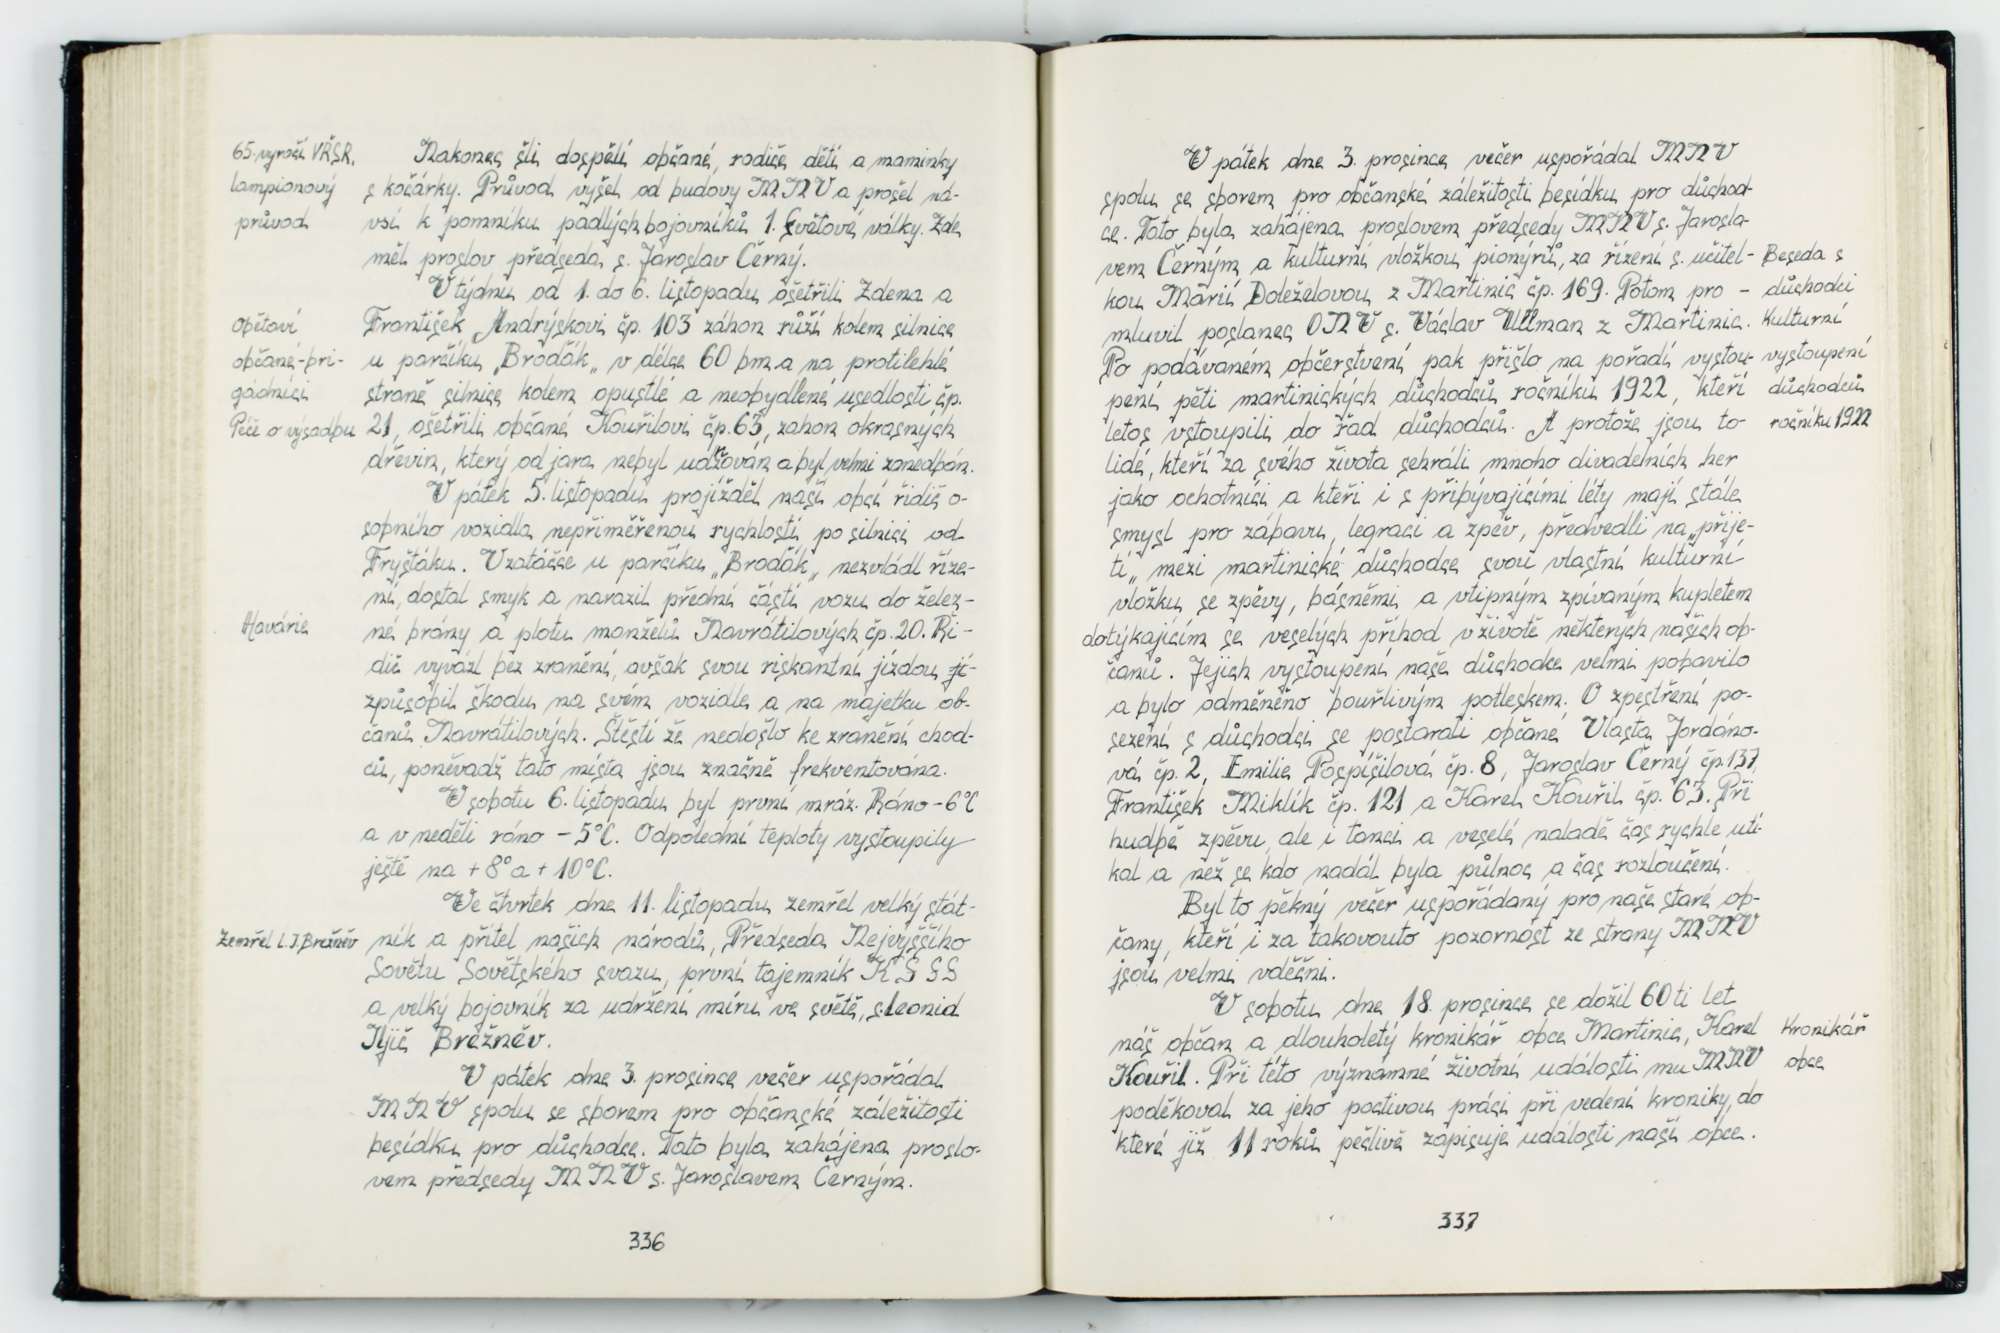 65. výročí VŘSR.
lampionový
průvod
Nakonec šli dospělí občané, rodiče dětí a maminky
s kočárky. Průvod vyšel od budovy MNV a prošel ná-
vsí k pomníku padlých bojovníků 1. Světové války. Zde
měl proslov předseda s. Jaroslav Černý.
V týdnu od 1. do 6. listopadu ošetřili Zdena a
Obětaví
občané-bri-
gádníci
Péče o výsadbu
František Andrýskovi čp. 103 záhon růží kolem silnice
u parčíku „Broďák„ v délce 60 bm a na protilehlé
straně silnice kolem opustlé a neobydlené usedlosti čp.
21, ošetřili občané Kouřilovi čp. 63, zahon okrasných
dřevin, který od jara nebyl udržován a byl velmi zanedbán.
V pátek 5. listopadu projížděl naší obcí řidič o-
sobního vozidla nepřiměřenou rychlostí po silnici od
Fryštáku. V zatáčce u parčíku „Broďák„ nezvládl říze-
ní, dostal smyk a narazil přední částí vozu do želez-
Havárie
né brány a plotu manželů Navrátilových čp. 20. Ři-
dič vyvázl bez zranění, avšak svou riskantní jízdou jí-
způsobil škodu na svém vozidle a na majetku ob-
čanů Navrátilových. Štěstí že nedošlo ke zranění chod-
ců, poněvadž tato místa jsou značně frekventována.
V sobotu 6. listopadu byl první mráz. Ráno -6°C
a v neděli ráno -5°C. Odpolední teploty vystoupily
ještě na +8° a +10°C.
Ve čtvrtek dne 11. listopadu zemřel velký stát-
Zemřel L.I.Brežněv
ník a přítel našich národů, Předseda Nejvyššího
Sovětu Sovětského svazu, první tajemník KSSS
a velký bojovník za udržení míru ve světě, s.Leonid
Iljič Brežněv.
V pátek dne 3. prosince večer uspořádal
MNV spolu se sborem pro občanské záležitosti
besídku pro důchodce. Tato byla zahájena proslo-
vem předsedy MNV s. Jaroslavem Černým.
336
V pátek dne 3. prosince večer uspořádal MNV
spolu se sborem pro občanské záležitosti besídku pro důchod-
ce. Tato byla zahájena proslovem předsedy MNV s. Jarosla-
vem Černým a kulturní vložkou pionýrů, za řízení s. učitel-
kou Márií Doleželovou z Martinic čp. 169. Potom pro-
mluvil poslanec ONV s. Václav Ullman z Martinic.
Po podávaném občerstvení pak přišlo na pořadí vystou-
pení pěti martinických důchodců ročníku 1922, kteří
letos vstoupili do řad důchodců. A protože jsou to
Beseda s
důchodci
Kulturní
vystoupení
důchodců
ročníku 1922
lidé, kteří za svého života sehráli mnoho divadelních her
jako ochotníci a kteří i s přibývajícími léty mají stále
smysl pro zábavu, legraci a zpěv, předvedli na „přije-
tí„ mezi martinické důchodce svou vlastní kulturní
vložku se zpěvy, básněmi a vtipným zpívaným kupletem
dotýkajícím se veselých příhod v životě některých našich ob-
čanů. Jejich vystoupení naše důchodce velmi pobavilo
a bylo odměněno bouřlivým potleskem. O zpestření po-
sezení s důchodci se postarali občané Vlasta Jordáno-
vá čp. 2, Emilie Pospíšilová čp. 8, Jaroslav Černý čp. 137,
František Miklík čp. 121 a Karel Kouřil čp. 63. Při
hudbě zpěvu, ale i tanci a veselé naladě čas rychle utí-
kal a než se kdo nadál byla půlnoc a čas rozloučení.
Byl to pěkný večer uspořádaný pro naše staré ob-
čany, kteří i za takovouto pozornost ze strany MNV
jsou velmi vděčni.
V sobotu dne 18. prosince se dožil 60 ti let
náš občan a dlouholetý kronikář obce Martinic, Karel
Kouřil. Při této významné životní události mu MNV
poděkoval za jeho poctivou práci při vedení kroniky, do
které již 11 roků pečlivě zapisuje události naší obce.
Kronikář
obce
337